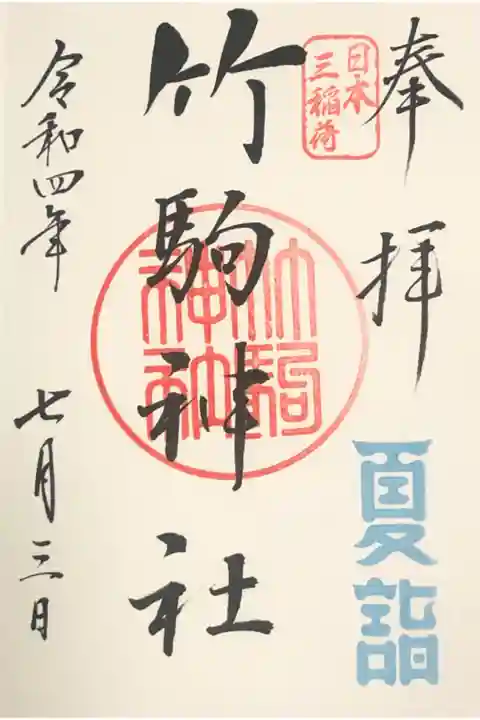 奉拝
日本
三稲荷
夏詣
竹駒神社
竹駒
神社
令和四年
七月三日